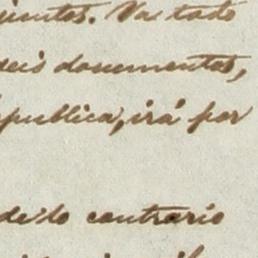 Va todo
seis documentos,
publica, irá por
de lo contrario